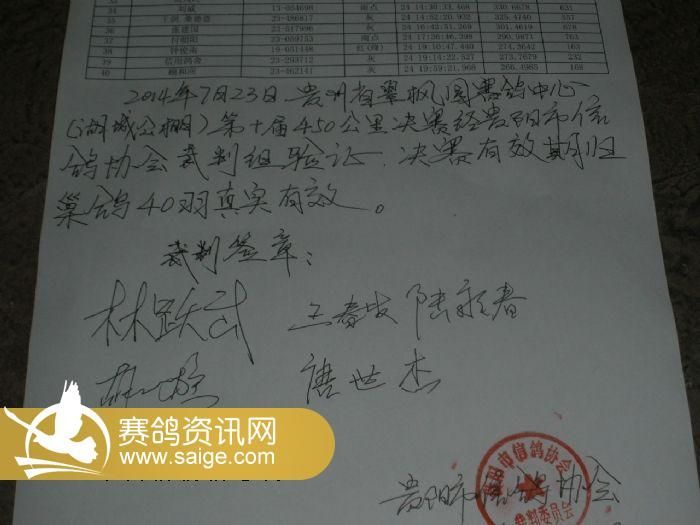 34 刘威 13-054698 雨点 24 14:30:33.469 330.6678 631
35 王圳.秦德恩 23-486817 灰 24 14:52:20.932 325.4740 557
36 张建国 23-517996 灰 24 16:43:51.269 301.3968 679
37 付朝阳 23-059753 雨点 24 17:36:46.388 290.9871 763
38 钟俊南 19-051448 24 19:10:47.440 274.3642 163
39 信用鸽舍 23-293729 灰 24 19:14:22.527 273.7679 232
40 23-462141 灰 24 19:59:21.968 266.4985 168
2014年7月23日贵州省翠枫园赛鸽中心
(湖城公棚)第十届450公里决赛经贵阳市信
鸽协会裁判组验证，决赛有效期归
巢鸽40羽真实有效。
裁判签章：
林跃武 王春发 陆永春
唐世杰
赛鸽资讯网
www.saige.com
贵阳市信鸽协会
裁判委员会
贵阳市信鸽协会